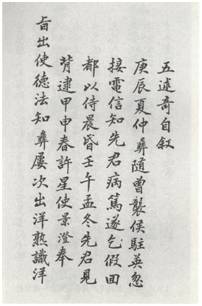 五述奇自叙
庚辰夏仲彝隨曾襲侯駐英忽
接電信知先君病篤遂乞假回
都以侍晨昏壬午孟冬先君見
背逮甲申春許星使景澄奉
旨出使德法知彝屢次出洋熟識洋